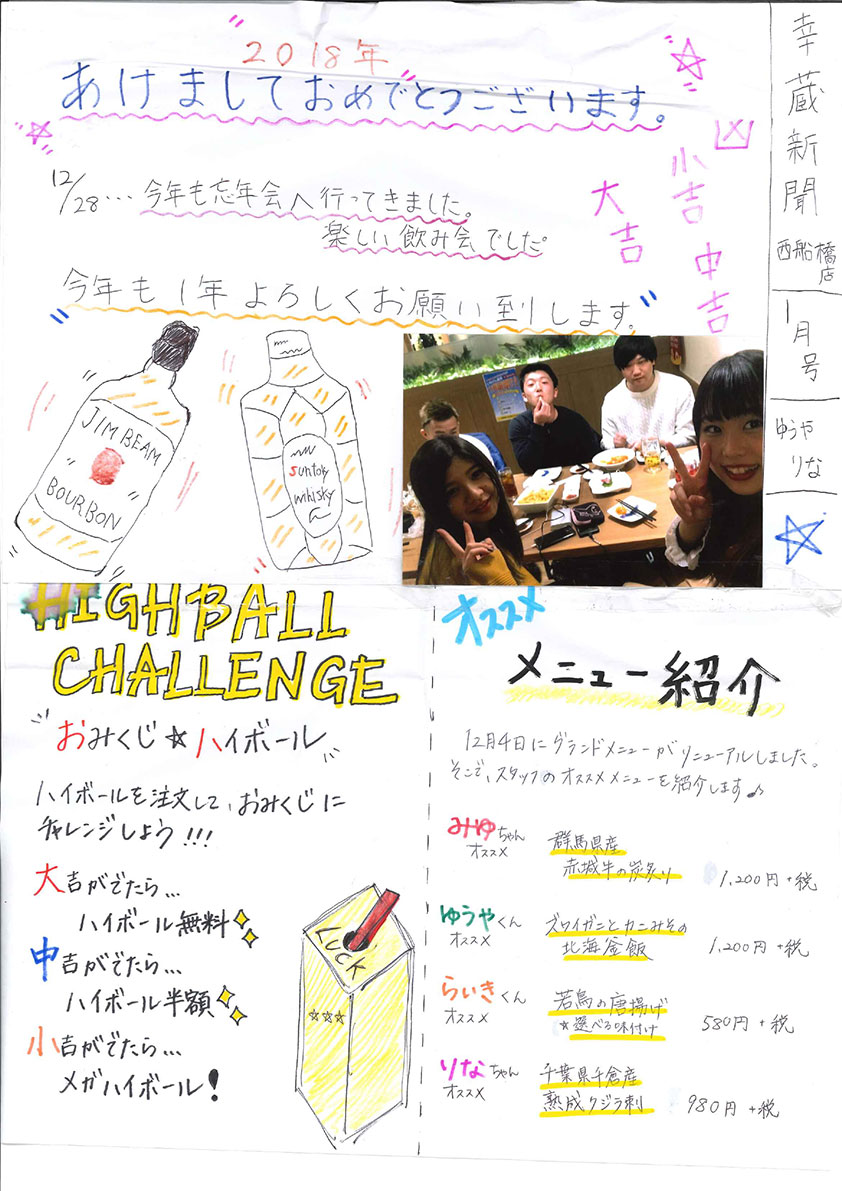 幸蔵新聞
西船橋店
1月号
ゆうや
りな
2018年
あけましておめでとうございます。
凶
小吉
中吉
大吉
12/28…今年も忘年会へ行ってきました。
楽しい飲み会でした。
今年も1年よろしくお願い到します。
JIM BEAM
BOURBON
suntory
whisky
HIGHBALL
CHALLENGE
おみくじ☆ハイボール
ハイボールを注文して、おみくじに
チャレンジしよう!!!
大吉がでたら…
ハイボール無料
中吉がでたら…
ハイボール半額
小吉がでたら…
メガハイボール!
LUCK
☆☆☆
オススメ
メニュー紹介
12月4日にグランドメニューがリニューアルしました。
そこで、スタッフのオススメメニューを紹介します♪
みゆちゃん
オススメ
群馬県産
赤城牛の炭炙り 1,200円+税
ゆうやくん
オススメ
ズワイガニとカニみその
北海釜飯 1,200円+税
らいきくん
オススメ
若鳥の唐揚げ
★選べる味付け 580円+税
りなちゃん
オススメ
千葉県千倉産
熟成クジラ刺 980円+税